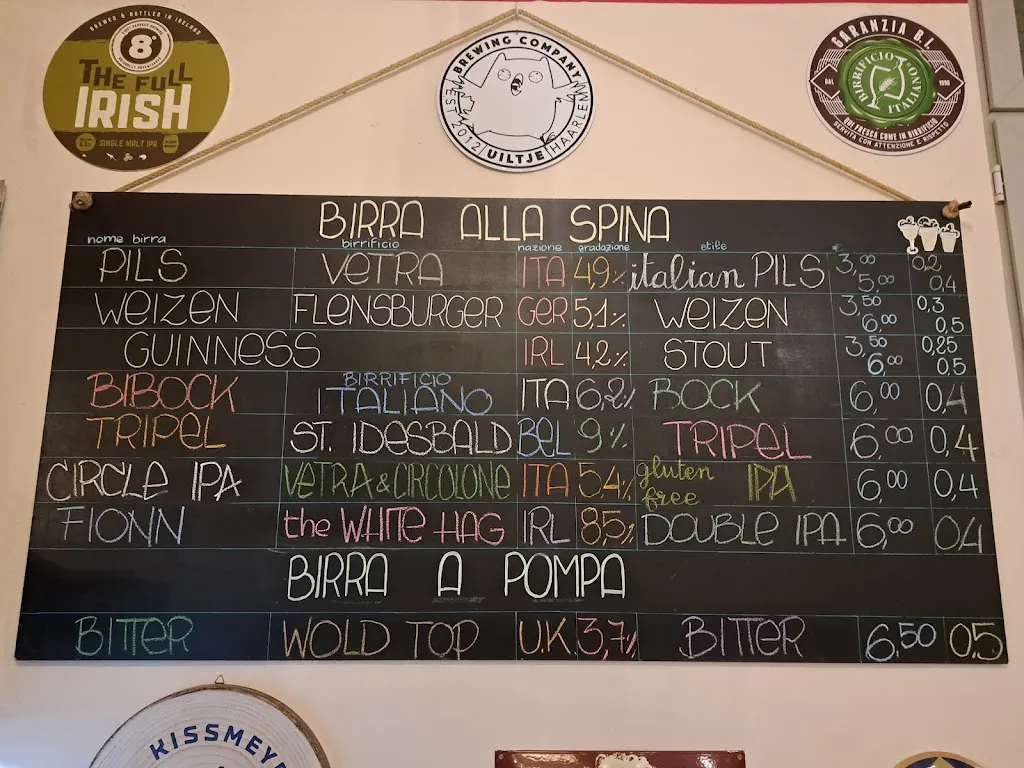 BREWED & BOTTLED IN IRELAND
8°
THE FULL
IRISH
SINGLE MALT IPA
BREWING COMPANY
EST 2012 | UILTJE | HAARLEM
GARANZIA B.I.
DAL 1996
BIRRIFICIO ITALIANO
QUI FRESCA COME IN BIRRIFICIO
SERVITA CON ATTENZIONE E RISPETTO
BIRRA ALLA SPINA
nome birra birrificio nazione gradazione stile
PILS VETRA ITA 4,9% italian PILS 3,00 0,2
5,00 0,4
WEIZEN FLENSBURGER GER 5,1% WEIZEN 3,50 0,3
6,00 0,5
GUINNESS IRL 4,2% STOUT 3,50 0,25
6,00 0,5
BIBOCK BIRRIFICIO ITALIANO ITA 6,2% BOCK 6,00 0,4
TRIPEL ST. IDESBALD BEL 9% TRIPEL 6,00 0,4
CIRCLE IPA VETRA & CIRCOLONE ITA 5,4% gluten free IPA 6,00 0,4
FIONN the WHITE HAG IRL 8,5% DOUBLE IPA 6,00 0,4
BIRRA A POMPA
BITTER WOLD TOP U.K 3,7% BITTER 6,50 0,5
KISSMEYE